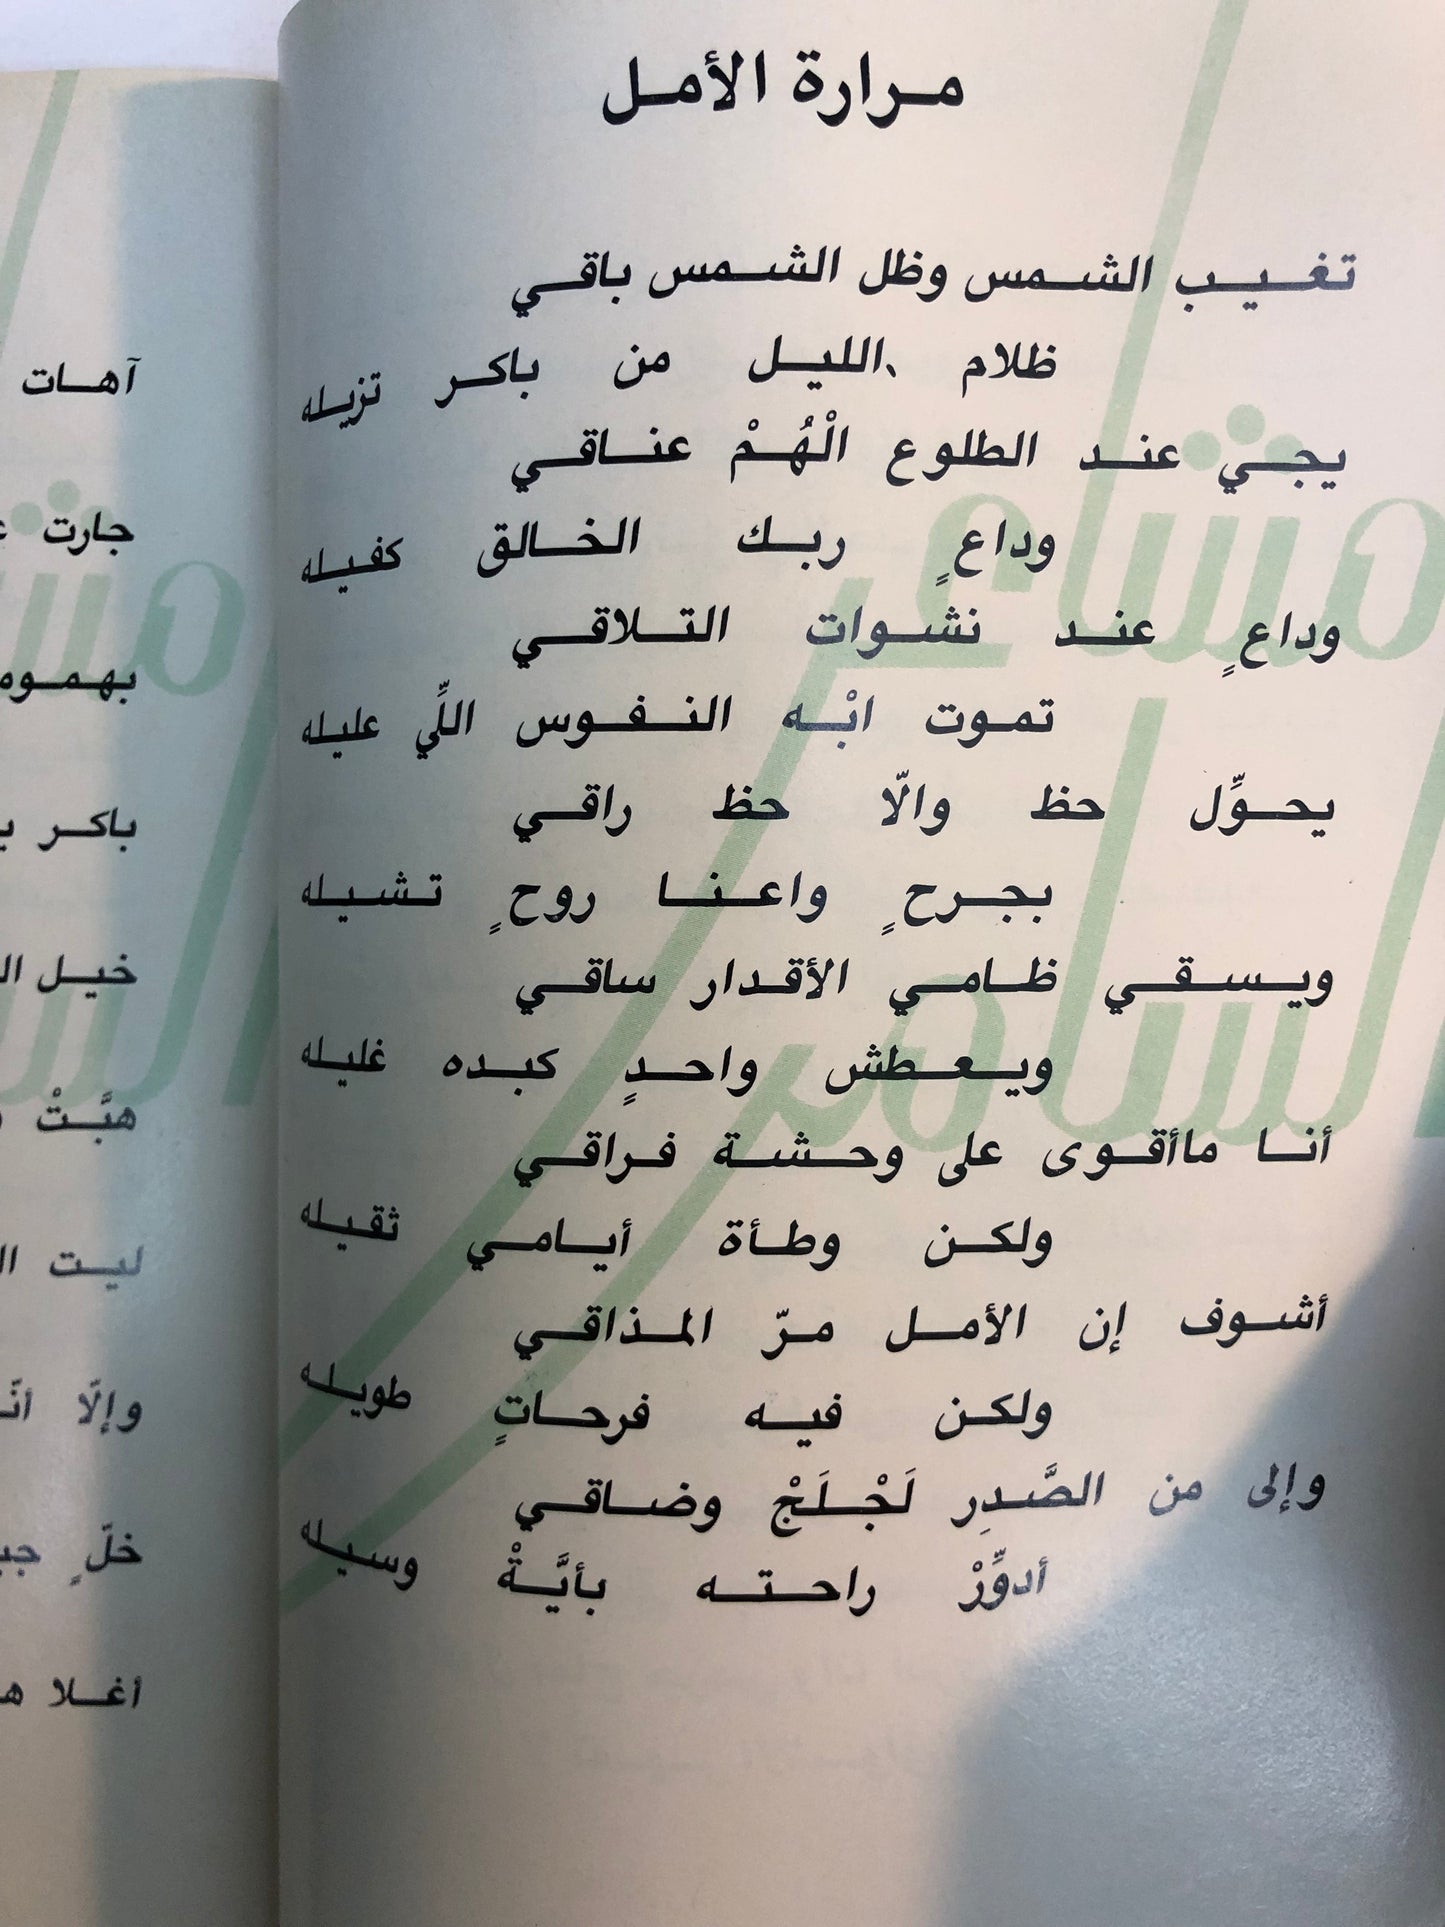 مرارة الأمل
تغيب الشمس وظل الشمس باقي
ظلام الليل من باكر تزيله
يجي عند الطلوع الْهُمْ عناقي
وداعٍ ربك الخالق كفيله
وداعٍ عند نشوات التلاقي
تموت ابْه النفوس اللِّي عليله
يحوِّل حظ والّا حظ راقي
بجرحٍ واعنا روحٍ تشيله
ويسقي ظامي الأقدار ساقي
ويعطش واحدٍ كبده غليله
أنا ماأقوى على وحشة فراقي
ولكن وطأة أيامي ثقيله
أشوف إن الأمل مرّ المذاقي
ولكن فيه فرحاتٍ طويله
وإلى من الصَّدِر لَجْلَجْ وضاقي
أدوِّرْ راحته بأيَّةْ وسيله
آهات
جارت
بهموم
باكر
خيل
هبَّتْ
ليت
وإلّا
خلّ
أغلا
مشاعر
الساهر